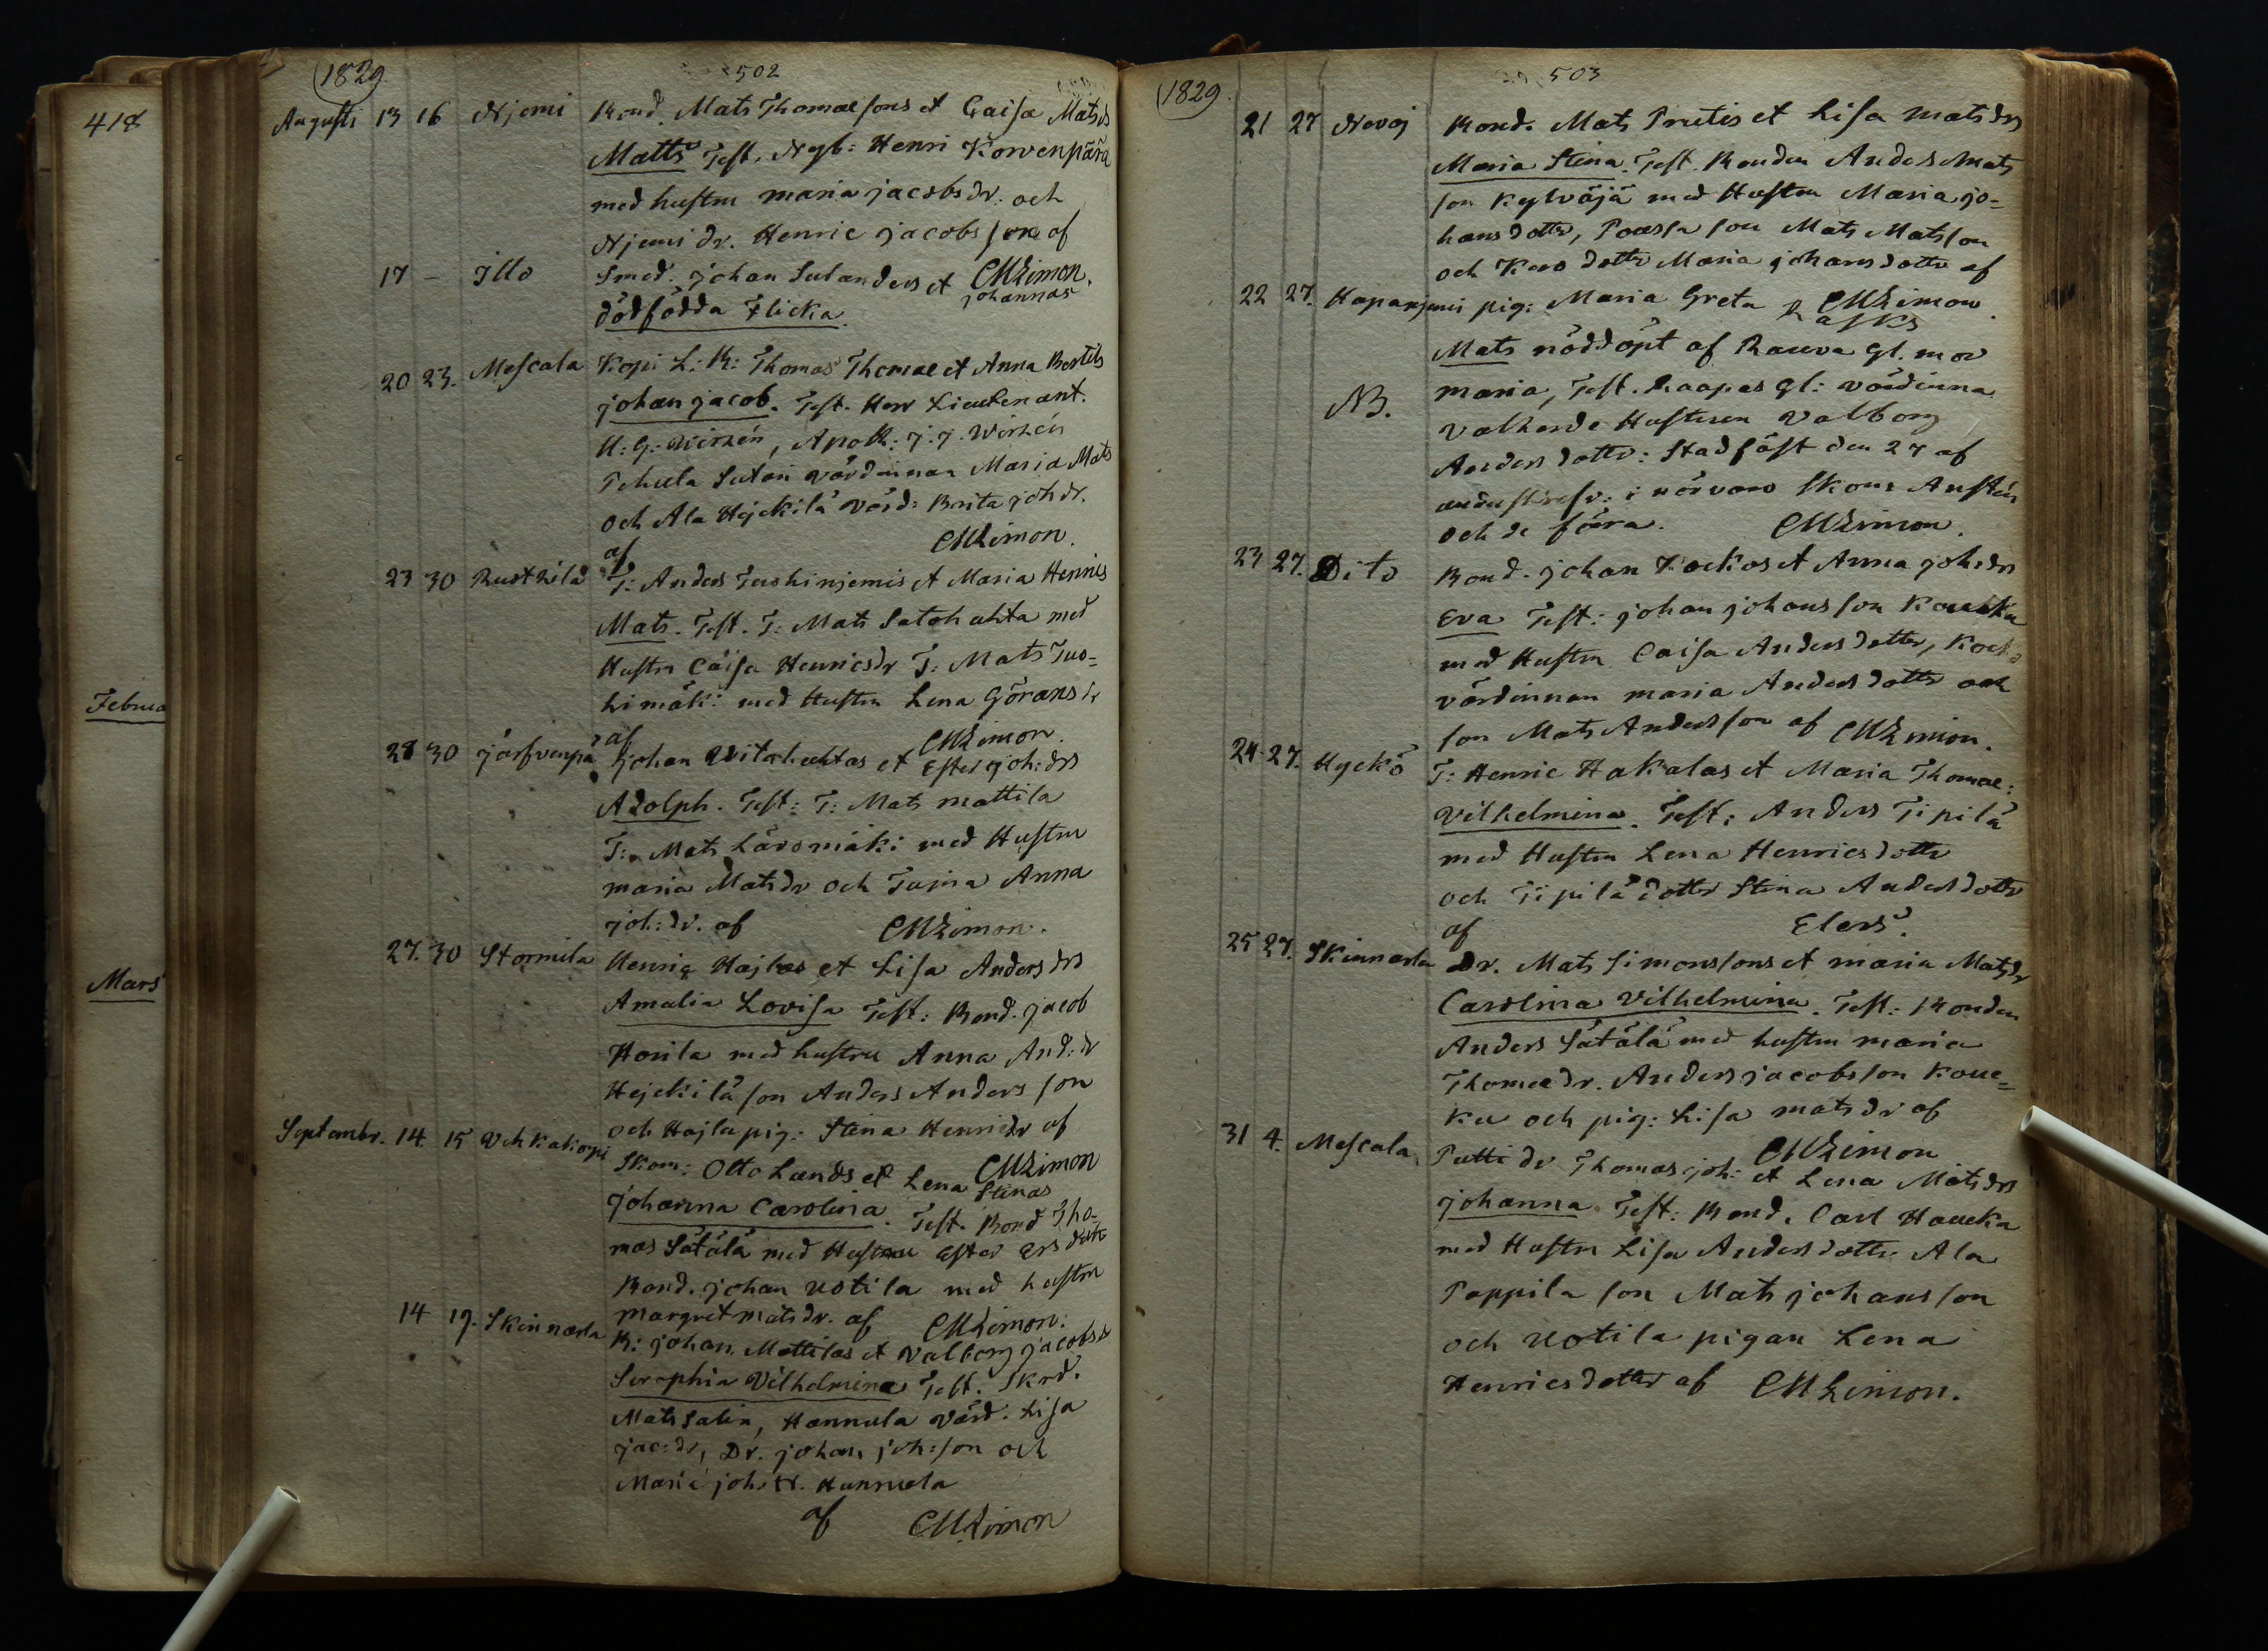 418
Februa
Mars
1829.
502
Augusti 13 16 Njemi Bond. Mats Thomaesons et Caisa Matsds
Matts Test. Nyb: Henri Korvenpärä
med hustru maria jacobsdr. och
Njemi dr. Henric jacobsson af
17 – Illo Smed. Johan Sulanders et CMLimon.
johannas
dödfödda Flicka.
20 23. Mescala Kopi L: K: Thomas Thomae et Anna Bertils
johan jacob. Test. Herr Lieutenant.
U: G: Wirzén, Apoth: J. J. Wirzén
Pehula Sutari värdinnan Maria Mats
och Ala Hejckilä värd: Brita joh dr.
af CMLimon.
23 30 Rustkila T: Anders Tuohinjemis et Maria Hennis
Mats. Test. T: Mats Satohuhta med
Hustru Caisa Henricsdr T: Mats Tuo=
himäki med Hustru Lena Göransdr
af CMLimon.
28 30 järfvenpä Johan Viitahuhtas et Ester joh: drs
Adolph. Test: T: Mats mattila
T: Mats Lärsmäki med Hustru
maria Matsdr och Tupia Anna
joh: dr. af CMLimon.
27. 30 Stormila Henric Hajlas et Lisa Andersdrs
Amalia Lovisa Test: Bond. jacob
Horila med hustru Anna And: dr
Hejckilä son Anders Andersson
och Hajla pig: Stina Henricdr af
Septembr. 14 15 Vehkakorpi Skom: Otto Lunds et Lena CMLimon
Stinas
johanna Carolina. Test. Bond Tho-
mas Sätälä med Hustru Ester Ersdotr
Bond. johan uotila med hustru
margret matsdr. af CMLimon.
14 19. Skinnarla B: johan Mattilas et Valborg jacobsdr
Seraphia Vilhelmina Test. Skrd.
Mats Salin, Hannula värd. Lisa
jac: dr, Dr. johan joh: son och
Maria joh: dr. Hannula
af CMLimon
1829.
503
21 27 Novoj Bond. Mats Prutis et Lisa matsdrs
Maria Stina. Test. Bonden Anders Mats
son Kylväjä med Hustru Maria jo-
hansdotter, Poussa son Mats Matsson
och Kero dotter Maria johansdotter af
22 27. Haparnjemi pig: Maria Greta R CMLimon.
asks
Mats nöddöpt af Rauva gl. mor
NB. maria, Test. Laapas gl: värdinna
Valborg
Andersdotter: Stadfäst den 27 af
i närvaro Skom Austén
och de förra. CMLimon.
23 27. Dito Bond. johan Kockos et Anna johsdrs
Eva Test: johan johansson Koucku
med Hustru Caisa Andersdotter, Kocko
värdinnan maria Andersdotter och
son Mats Andersson af CMLimon.
24 27. Hyckö T: Henric Hakalas et Maria Thomae:
Vilhelmina. Test: Anders Tipilä
med Hustru Lena Henricsdotter
och Tipilä dotter Stina Andersdotter
af Elers.
25 27. Skinnarla Dr. Mats Simonssons et maria Matsdr
Carolina Vilhelmina. Test: Bonden
Anders Sätälä med hustru maria
Thomaedr. Anders jacobsson Kouc=
ku och pig: Lisa matsdr af
CMLimon
31 4. Mescala Putti dr Thomas joh: et Lena Matsdrs
johanna Test: Bond. Carl Haucka
med Hustru Lisa Andersdotter Ala
Pappila son Mats johansson
och uotila pigan Lena
Henricsdotter af CMLimon.